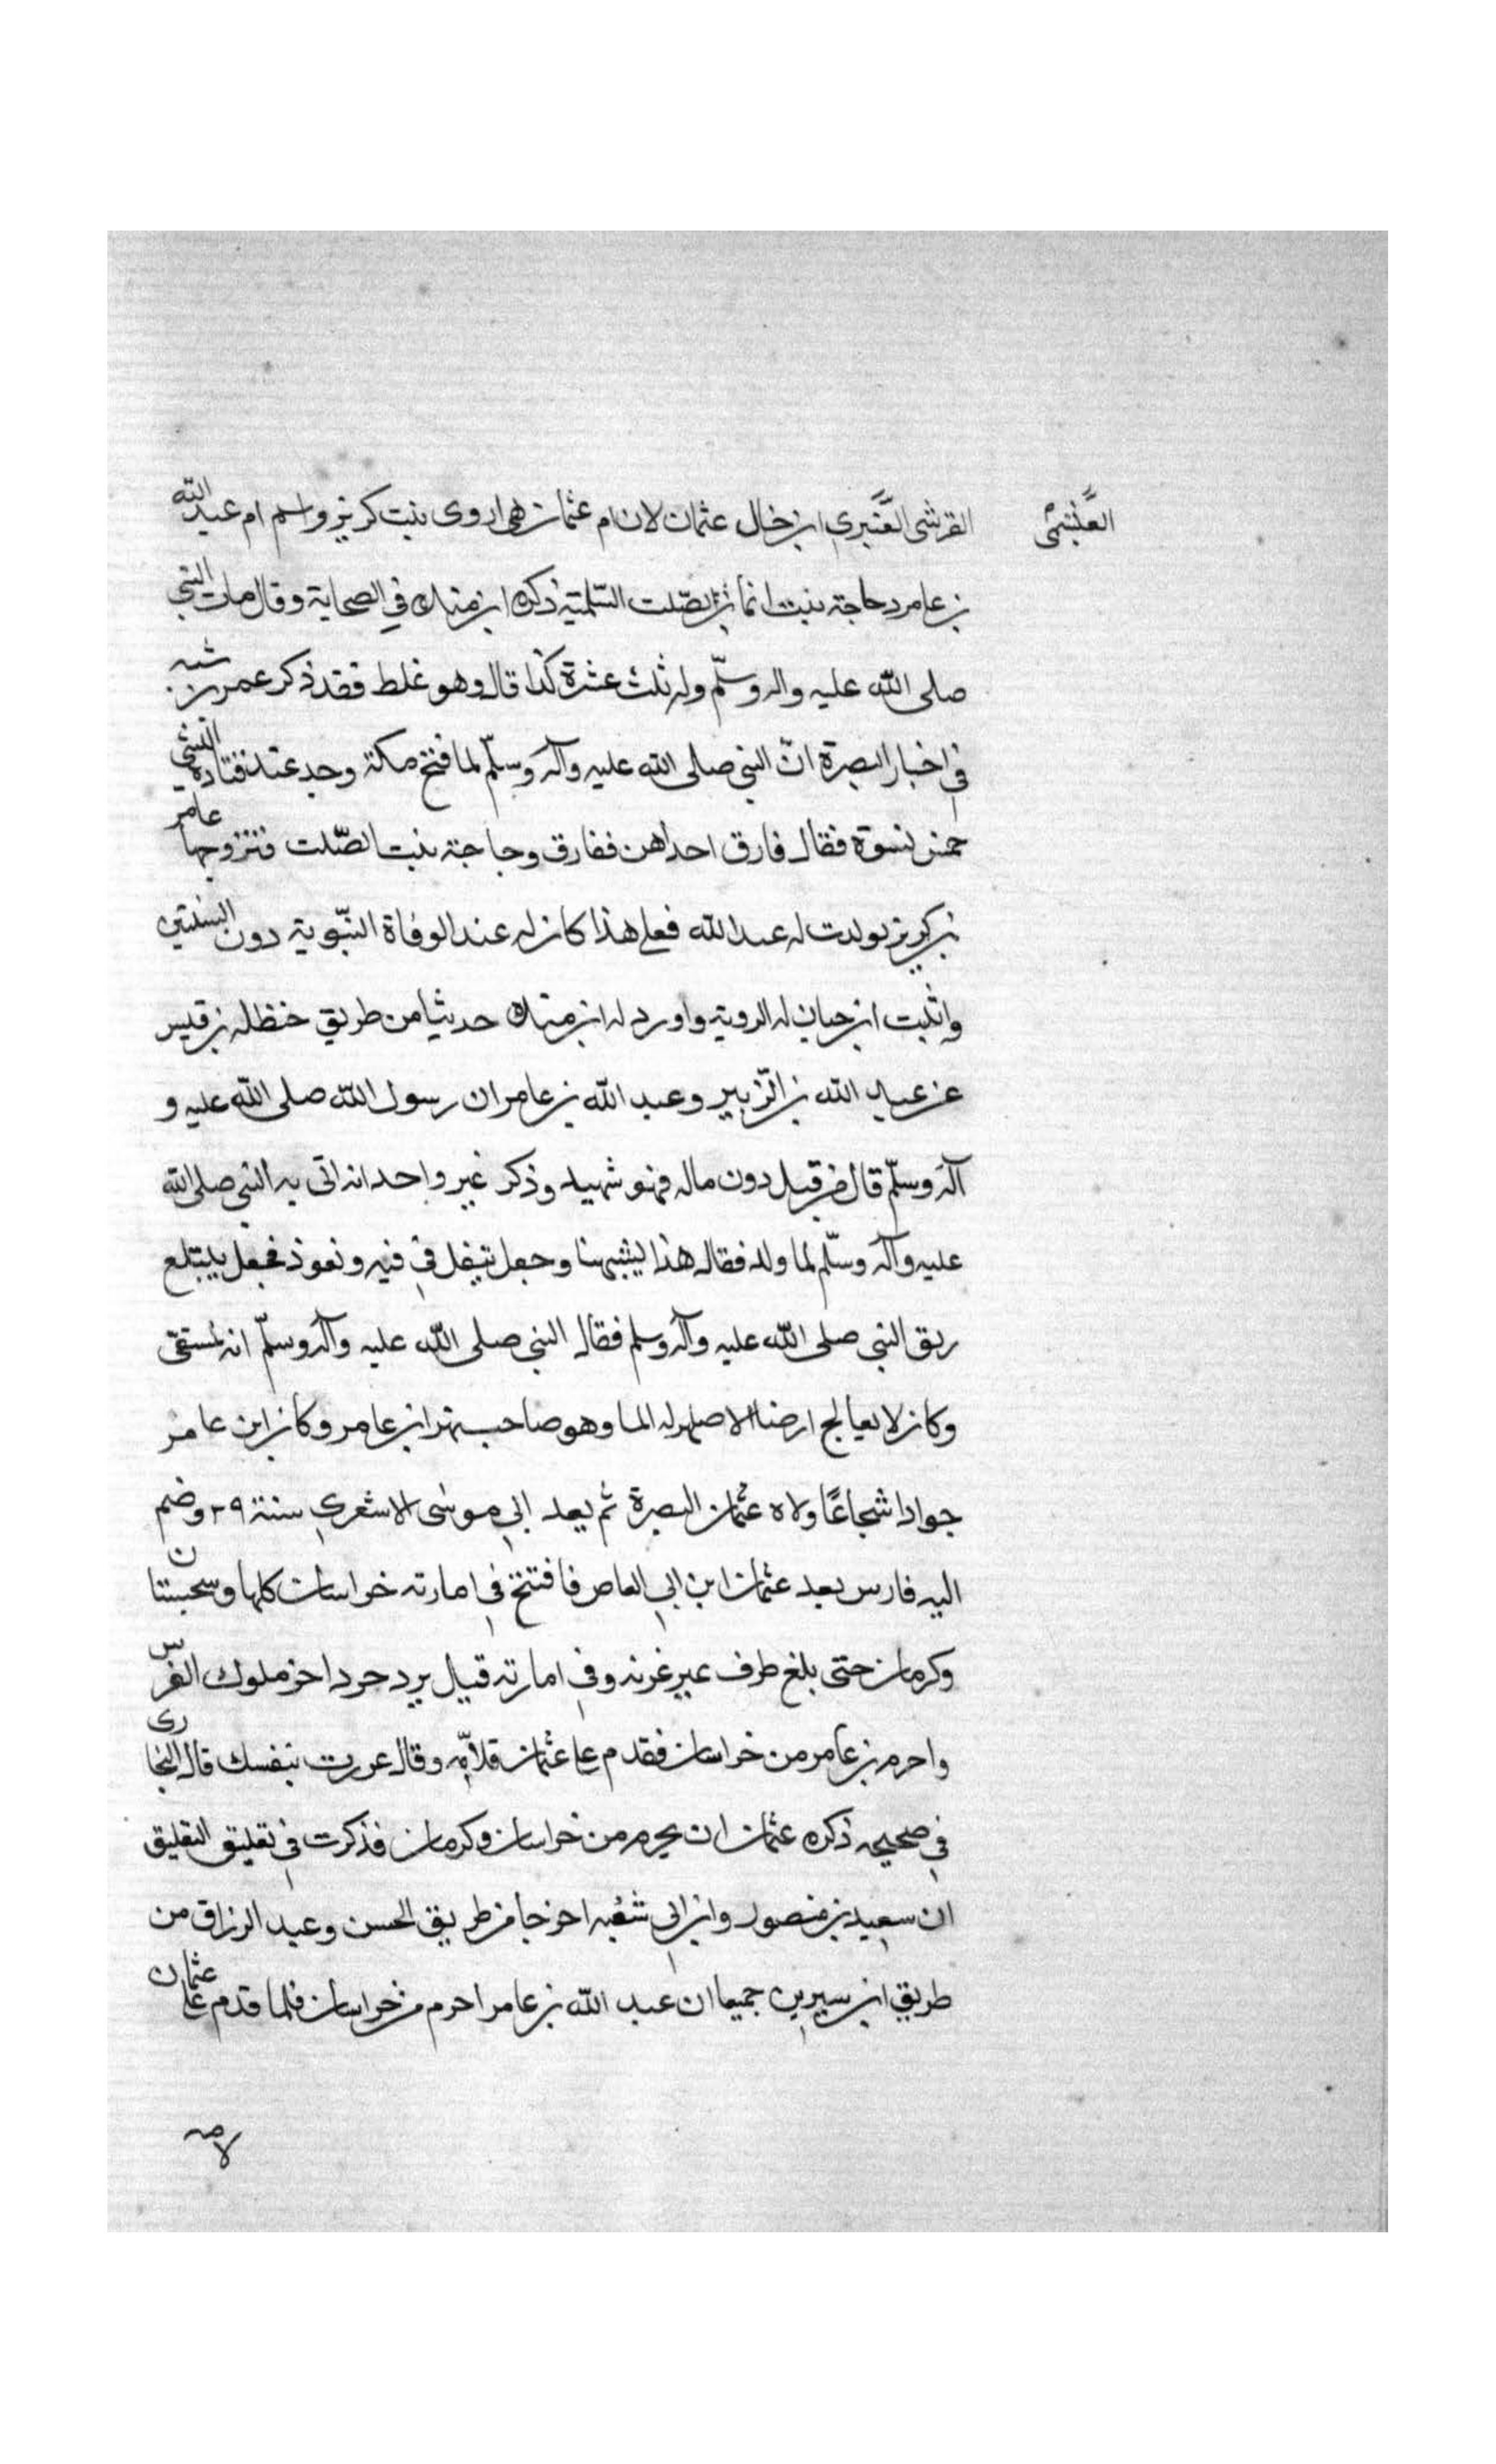 العبشمی
القرشی العنبری ابن خال عثمان لان ام عثمان هی اروی بنت کریز واسم ام عبد الله
بن عامر دجاجة بنت اسما بن الصّلت السّلمیّة ذکره ابن منده فی الصحابة وقال مات النبی
صلی الله علیه واله وسلّم وله ثلث عشرة کذا قال وهو غلط فقد ذکر عمر بن شبه
فی اخبار البصرة انّ النبی صلی الله علیه وآله وسلّم لما فتح مکة وجد عند قتادة
خمس نسوة فقال فارق احداهن ففارق دجاجة بنت الصّلت فتزوجها عامر
بن کریز فولدت له عبد الله فعلی هذا کان له عند الوفاة النبّویة دون السنتین
واثبت ابن حبان له الرویة واورد له ابن منده حدیثا من طریق حنظله بن قیس
عن عبد الله بن الزّبیر وعبد الله بن عامر ان رسول الله صلی الله علیه و
آله وسلّم قال من قتل دون ماله فهو شهید وذکر غیر واحد انه اتی به النبی صلی الله
علیه وآله وسلّم لما ولد فقال هذا یشبهنا وجعل یتفل فی فیه و نعوذ فجعل یبتلع
ریق النبی صلی الله علیه وآله وسلم فقال النبی صلی الله علیه وآله وسلّم انه لمسقی
وکان لا یعالج ارضا الا ظهر له الما وهو صاحب نهر ابن عامر وکان ابن عامر
جوادا شجاعًا ولاه عثمان البصرة ثم بعد ابی موسی الاشعری سنة ۲۹ وضم
الیه فارس بعد عثمان ابن ابی العاص فافتتح فی امارته خراسان کلها وسجستان
وکرمان حتی بلغ طرف غزنه وفی امارته قتل یردجرد اخر ملوک الفرس
واحرم بن عامر من خراسان فقدم علی عثمان فلامه وقال غررت بنفسک قال البخاری
فی صحیحه ذکره عثمان ان یحرم من خراسان وکرمان فذکرت فی تعلیق التعلیق
ان سعید بن منصور وابن ابی شیبه اخرجا من طریق الحسن وعبد الرزاق من
طریق ابن سیرین جمیعا ان عبد الله بن عامر احرم من خراسان فلما قدم علی عثمان
لامه